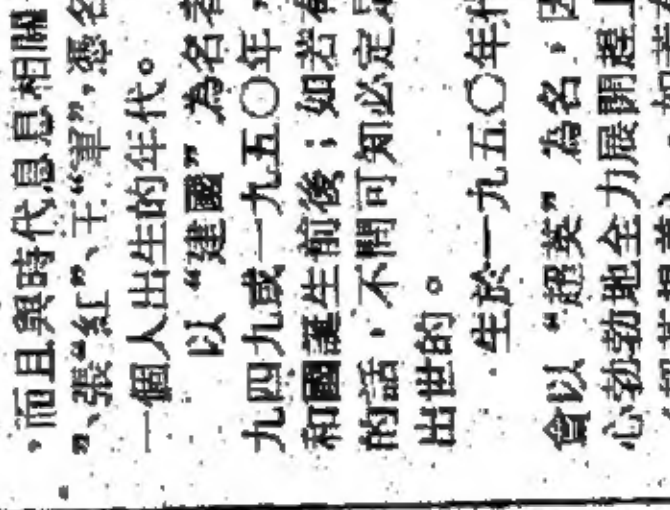 ，而且與時代息息相關
”、張“紅”、王“軍”，憑名
一個人出生的年代。
以“建國”為名者
九四九或一九五〇年，
和國誕生前後；如若有
的話，不問可知必定是
出世的。
生於一九五〇年代
會以“超英”為名，因
心勃勃地全力展開趕上